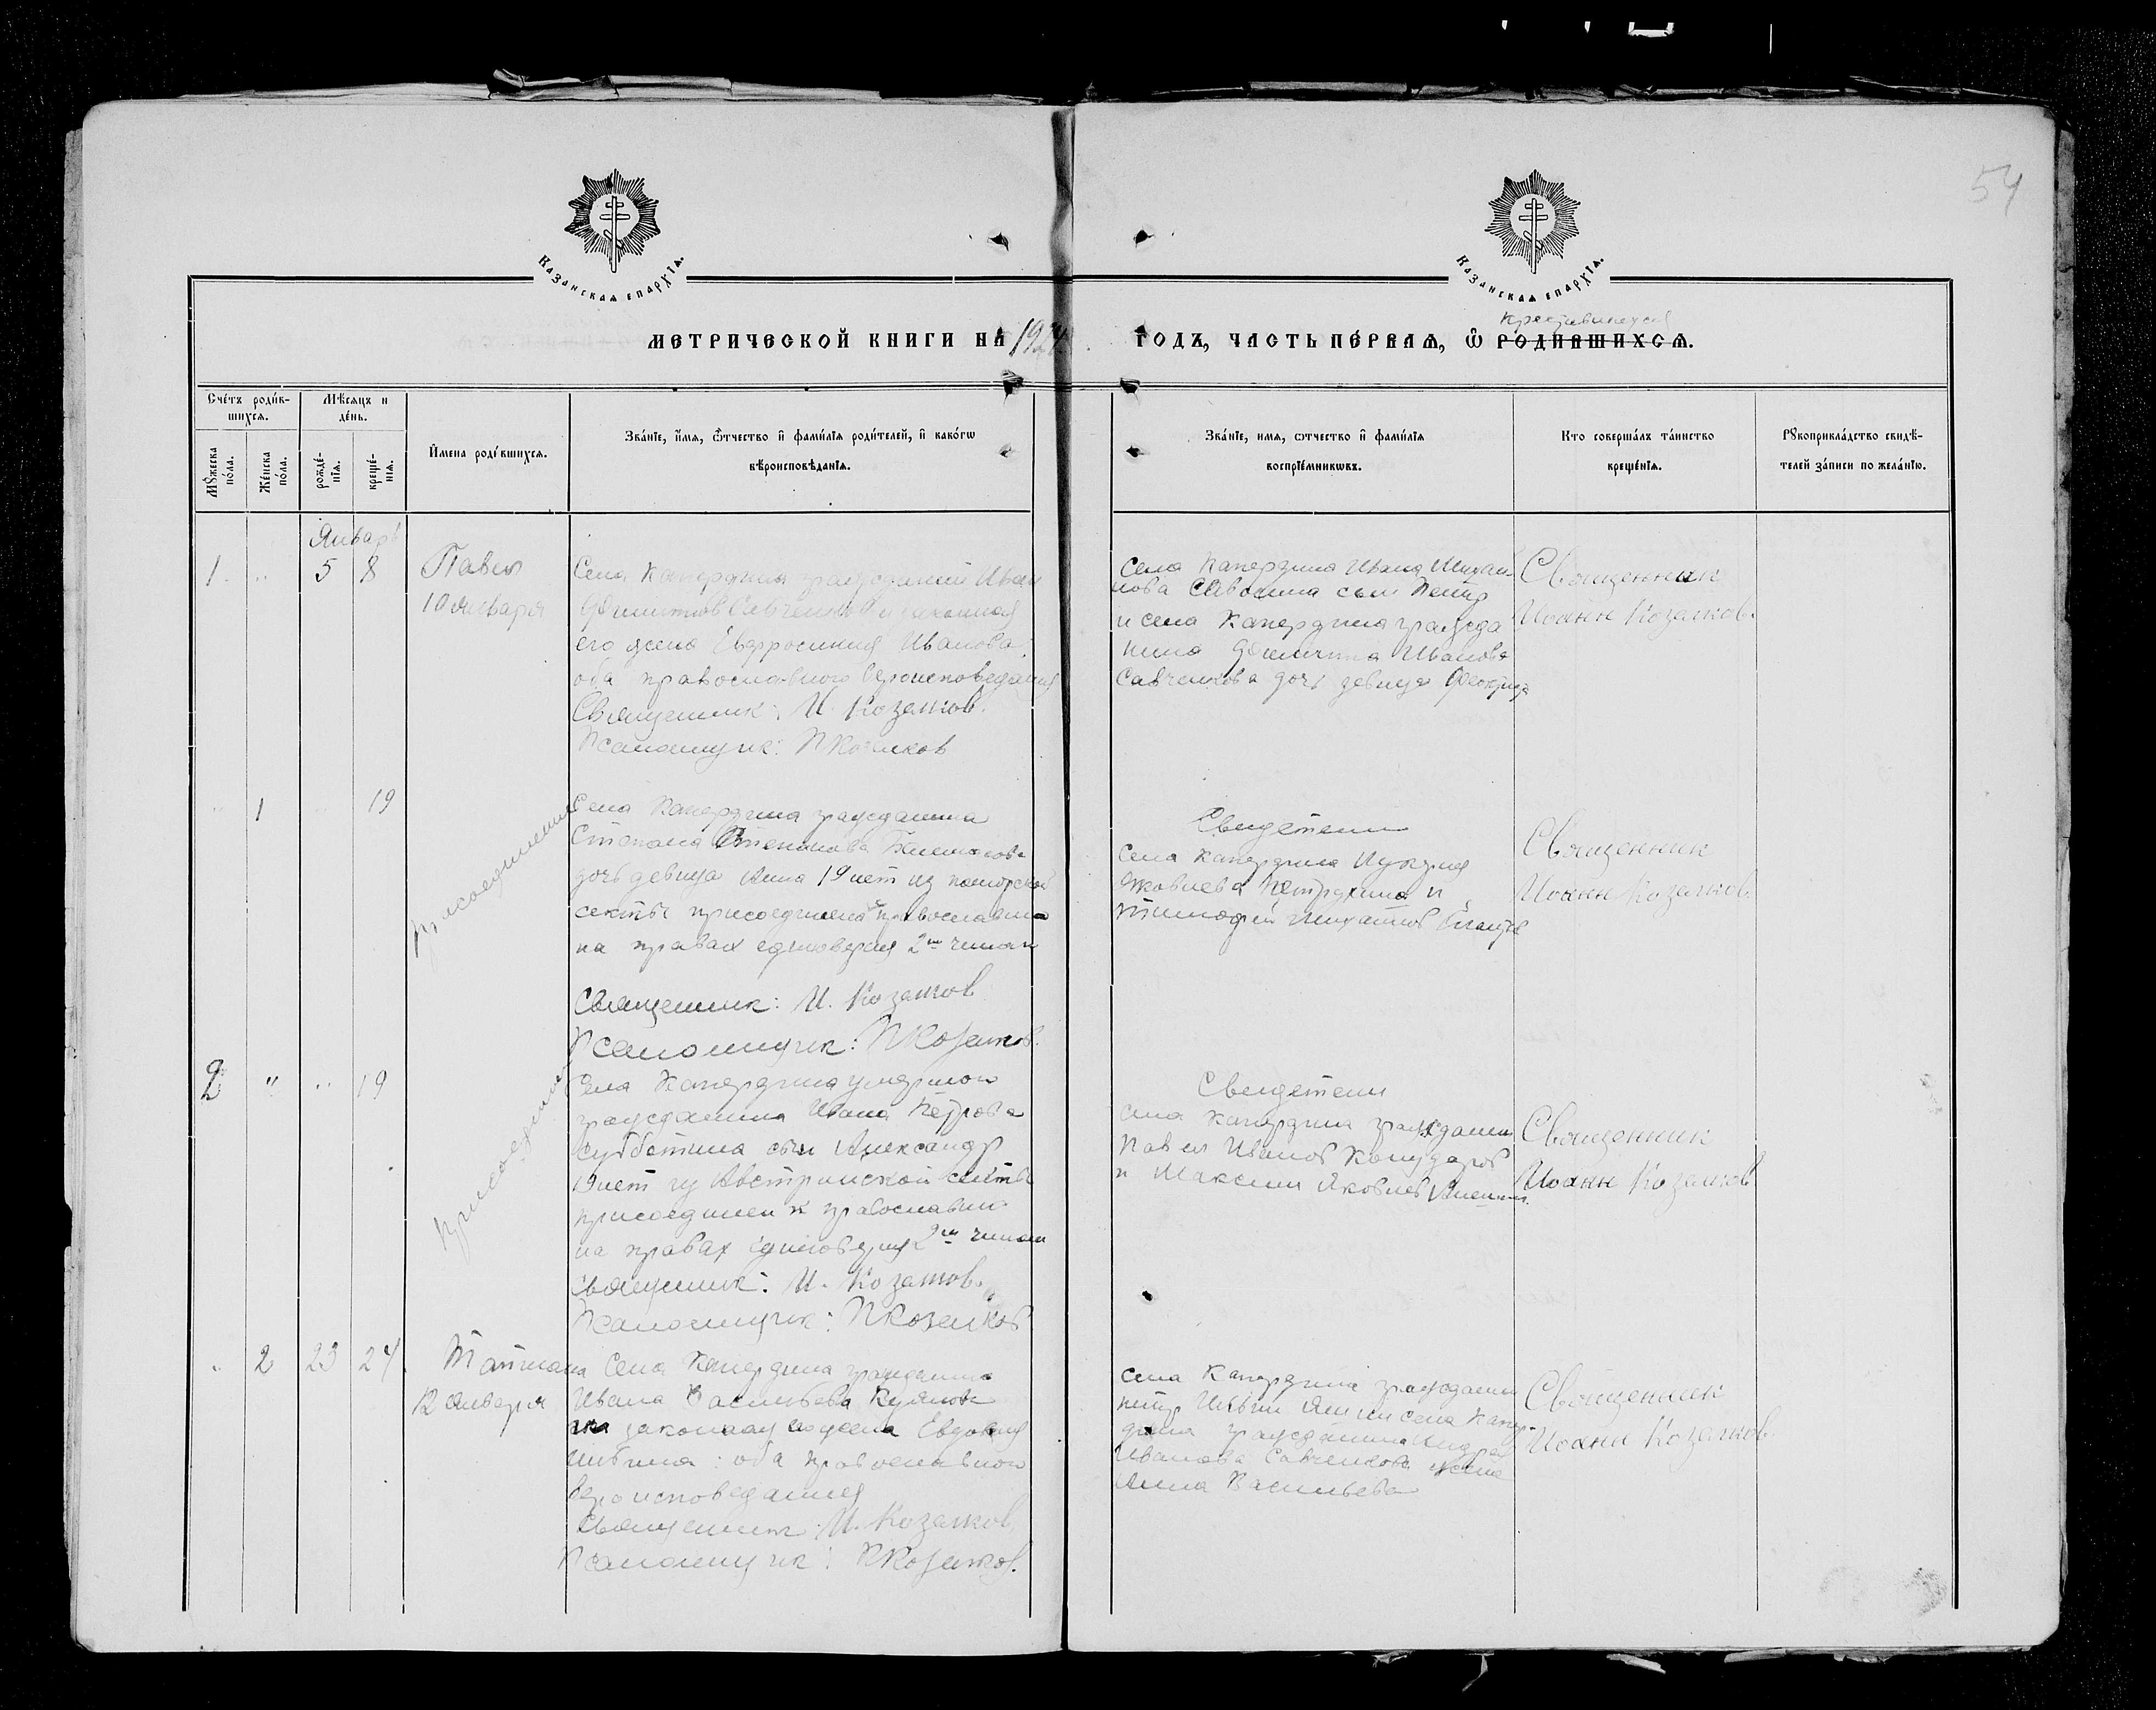 54
Казанская епархїѧ.
Казанская епархїѧ.
крестившихся
Метрической книги на 1924 годъ, часть пе́рваѧ, ѡ҆ родившихсѧ.
Сче́тъ роди́в-
шихсѧ.
Мѣсѧцъ и
де́нь.
Мꙋжеска
по́ла.
Же́нска
по́ла.
рожде́-
нїѧ.
креще́-
нїѧ.
И҆мена роди́вшихсѧ.
Зва́нїе, и҆́мѧ, ѻ҆́тчество и҆ фами́лїѧ роди́телей, и҆ како́гѡ
вѣроисповѣ́данїѧ.
Зва́нїе, имѧ, ѻтчество и҆ фами́лїѧ
воспрїе́мникѡвъ.
Кто соверша́лъ та́инство
креще́нїѧ.
Рꙋкоприкла́дство свидѣ́-
телей за́писи по жела́нїю.
Январь
1. " 5 8 Павел
10 января
Села Капердина гражданин Иван
Филиппов Савченков и законная
его жена Евфросиния Иванова,
оба православного вероисповедания
Священник: И. Козалков.
Псаломщик: П Козалков
Села Капердина Ивана Михай-
лова Савосина сын Петр
и села Капердина гражда
нина Филиппа Иванова
Савченкова дочь девица
Священник
Иоанн Козалков.
" 1 " 19
Присоединение
Села Капердина гражданина
Степана
дочь девица Анна 19 лет из поморской
секты присоединена к православию
на правах единоверия 2м чином
Священник: И. Козалков
Псаломщик: П Козалков.
Свидетели
Села Капердина
Яковлева и
Тимофей Михайлов
Священник
Иоанн Козалков.
2 " " 19
Присоединение
Села Капердина умершого
гражданина Ивана Петрова
Субботина сын Александр
19 лет из Австрийской секты
присоединен к православию
на правах единоверия 2м чином
Священник: И. Козалков.
Псаломщик: П Козалков
Свидетели
Села Капердина граждане
Павел Иванов
и Максим Яковлев
Священник
Иоанн Козалков
" 2 23 24. Татиана
12 января
Села Капердина гражданин
Ивана Васильева
законная его жена Евдокия
оба православного
вероисповедания
Священник: И. Козалков
Псаломщик: П Козалков.
Села Капердина гражданин
Петр Ильин и села Капер-
дина гражданина Андрея
Иванова Савченкова жена
Анна Васильева
Священник
Иоанн Козалков